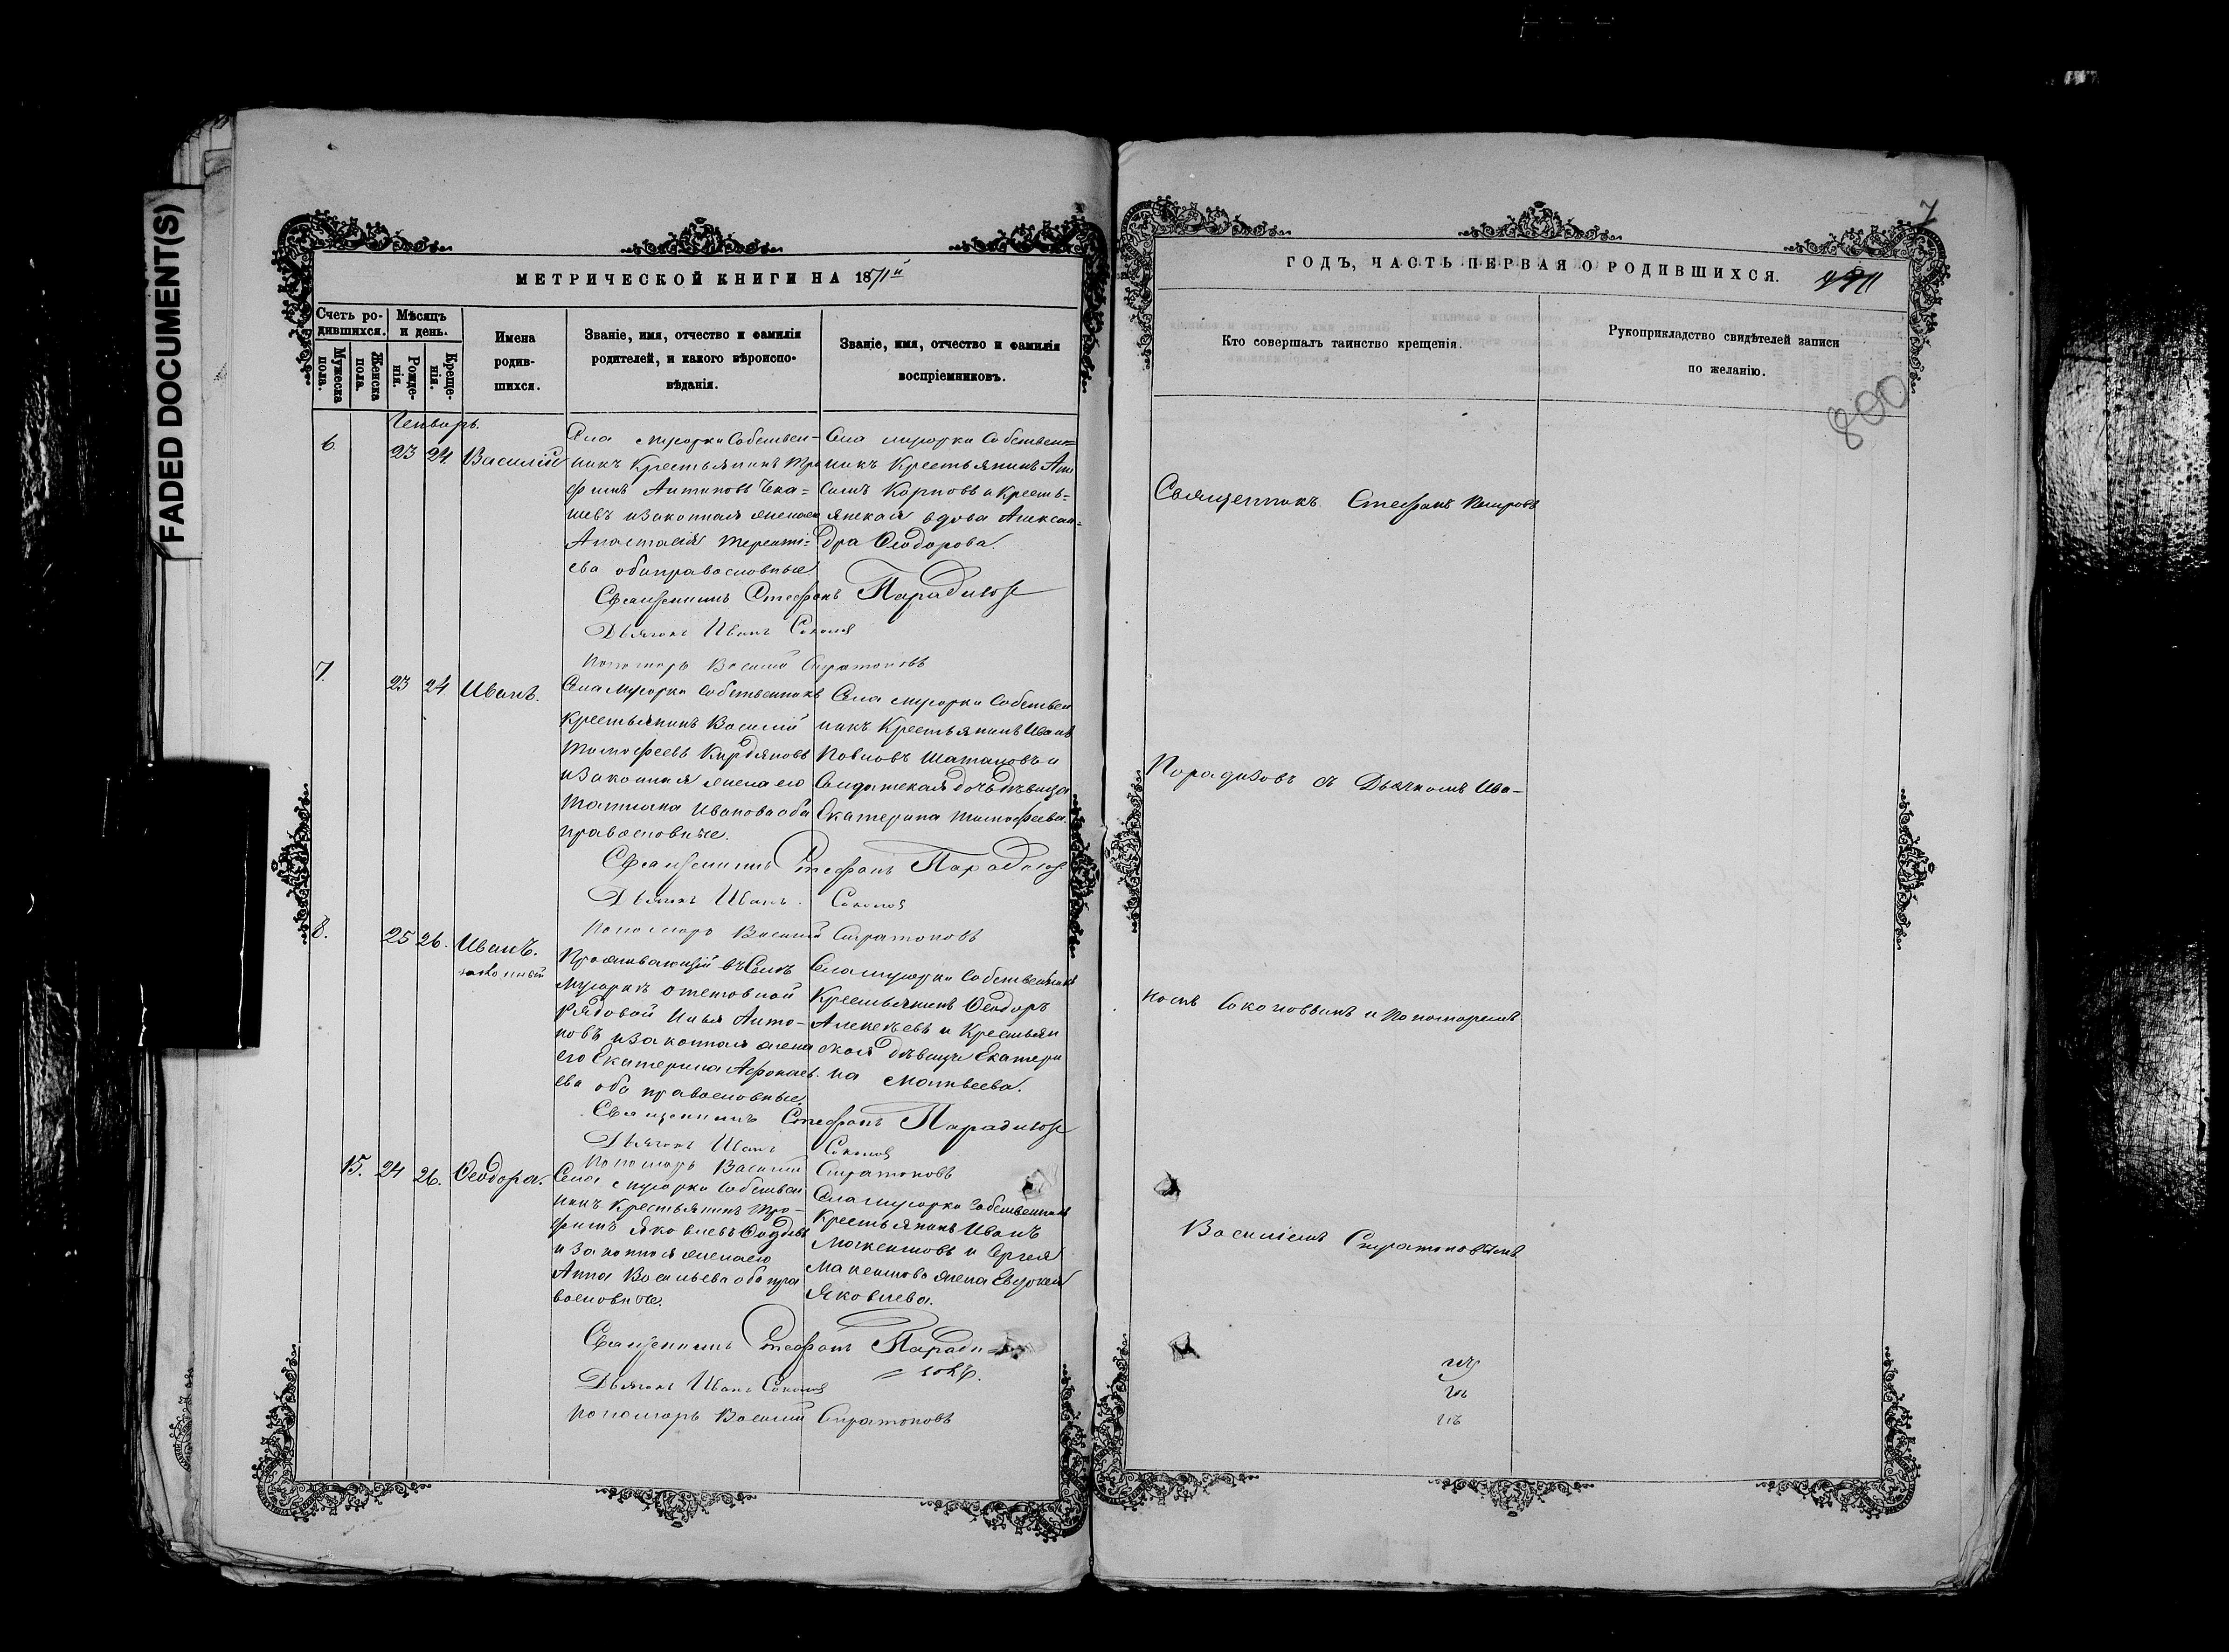 FADED DOCUMENT(S)
МЕТРИЧЕСКОЙ КНИГИ НА 1871й
Счетъ ро-
дившихся.
Мѣсяцъ
и день.
Мужеска
пола.
Женска
пола.
Рожде-
нія.
Креще-
нія.
Имена
родив-
шихся.
Званіе, имя, отчество и фамилія
родителей, и какого вѣроиспо-
вѣданія.
Званіе, имя, отчество и фамилія
воспріемниковъ.
Генварь.
6. 23 24. Василій
Села Мусорки Собствен-
никъ Крестьянинъ Тро
фимъ Антиповъ
и законная жена его
Анастасія Теренті-
ева оба православные.
Села Мусорки Собствен-
никъ Крестьянинъ
Карповъ и Кресть-
янская вдова Алексан-
дра Ѳеодорова.
Священникъ Стефанъ Парадизовъ
Дьячокъ Иванъ Соколов
Пономарь Василій Стратоновъ
7. 23 24 Иванъ.
Села Мусорки Собственникъ
Крестьянинъ Василій
Тимофеевъ Кирдяновъ
и законная жена его
Татиана Иванова оба
православные.
Села Мусорки Собствен
никъ Крестьянинъ Иванъ
Павловъ Шаталовъ и
Солдатская дочь дѣвица
Екатерина Тимофеева.
Священникъ Стефанъ Парадизов
Дьячокъ Иванъ Соколов
Пономарь Василій Стратоновъ
8. 25 26. Иванъ.
законный
Проживающій въ Селѣ
Мусоркѣ отставной
рядовой Илья Анто-
новъ и законная жена
его Екатерина Афонась-
ева оба православные.
Села Мусорки Собственникъ
Крестьянинъ Ѳеодоръ
Алексѣевъ и Крестьян
ская дѣвица Екатери
на Матвеева.
Священникъ Стефанъ Парадизов
Дьячокъ Иванъ Соколов
Пономарь Василій Стратоновъ
15. 24 26. Ѳеодора.
Села Мусорки Собствен
никъ Крестьянинъ Тро-
фимъ Яковлевъ
и законная жена его
Анна Васильева оба пра
вославные.
Села Мусорки Собственникъ
Крестьянинъ Иванъ
Максимовъ и Сергея
Максимова жена Евдокия
Яковлева.
Священникъ Стефанъ Паради-
=зовъ.
Дьячокъ Иванъ Соколов
Пономарь Василій Стратоновъ
7
ГОДЪ, ЧАСТЬ ПЕРВАЯ О РОДИВШИХСЯ.
Кто совершалъ таинство крещенія.
Рукоприкладство свидѣтелей записи
по желанію.
800
Священникъ Стефанъ
Парадизовъ съ Дьячкомъ Ива-
номъ Соколовымъ и Пономаремъ
Василіемъ Стратоновымъ